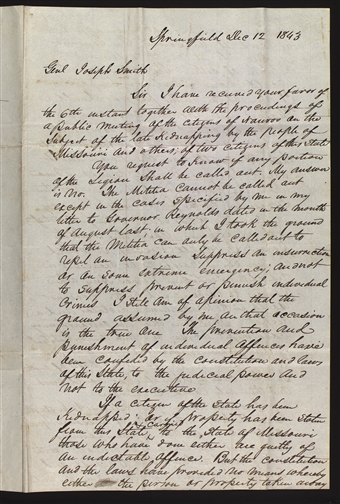 Springfield Dec 12 1843
Genl Joseph Smith
Sir I have received your favor of
the 6th instant together with the proceedings of
a public meeting of the citizens of Nauvoo on the
subject of the late kidnapping by the people of
Missouri and others, of two citizens of this state
You request to know if any portion
of the Legion shall be called out. My answer
is No. The Militia cannot be called out
except in the cases specified by me in my
letter to Governor Reynolds dated in the month
of August last in which I took the ground
that the Militia can only be called out to
repel an invasion suppress an insurrection
or on some extreme emergency; and not
to suppress prevent or punish individual
crimes I still am of opinion that the
ground assumed by me on that occasion
is the true one The prevention and
punishment of individual offences have
been confided by the constitution and laws
of this State to the judicial power and
not to the executive
If a citizen of the state has been
kidnapped; or if property has been stolen
from this State and carried to the State of Missouri
those who have done either are guilty of
an indictable offence. But the constitution
and the laws have provided no means whereby
either the person or property taken away